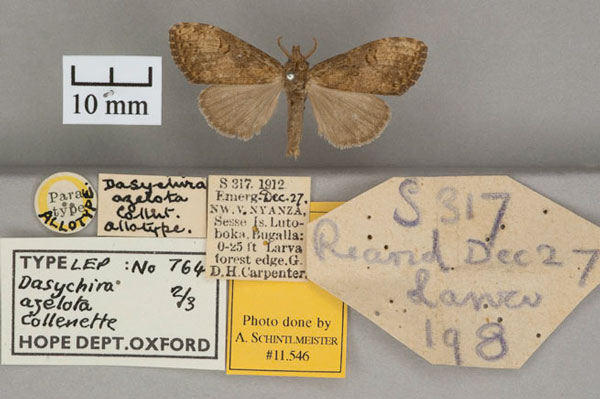 10 mm
Para
type
ALLOTYPE.
Dasychira
azelota
Collut.
allotype.
S 317. 1912
Emerg. Dec. 27.
NW. V. NYANZA,
Sesse Is. Luto-
boka, Bugalla:
0-25 ft Larva
forest edge. G.
D. H. Carpenter.
TYPE LEP : No 764
Dasychira 2/3
azelota
Collenette
HOPE DEPT. OXFORD
Photo done by
A. SCHINTLMEISTER
#11.546
S 317
Reared Dec 27
Larva
198